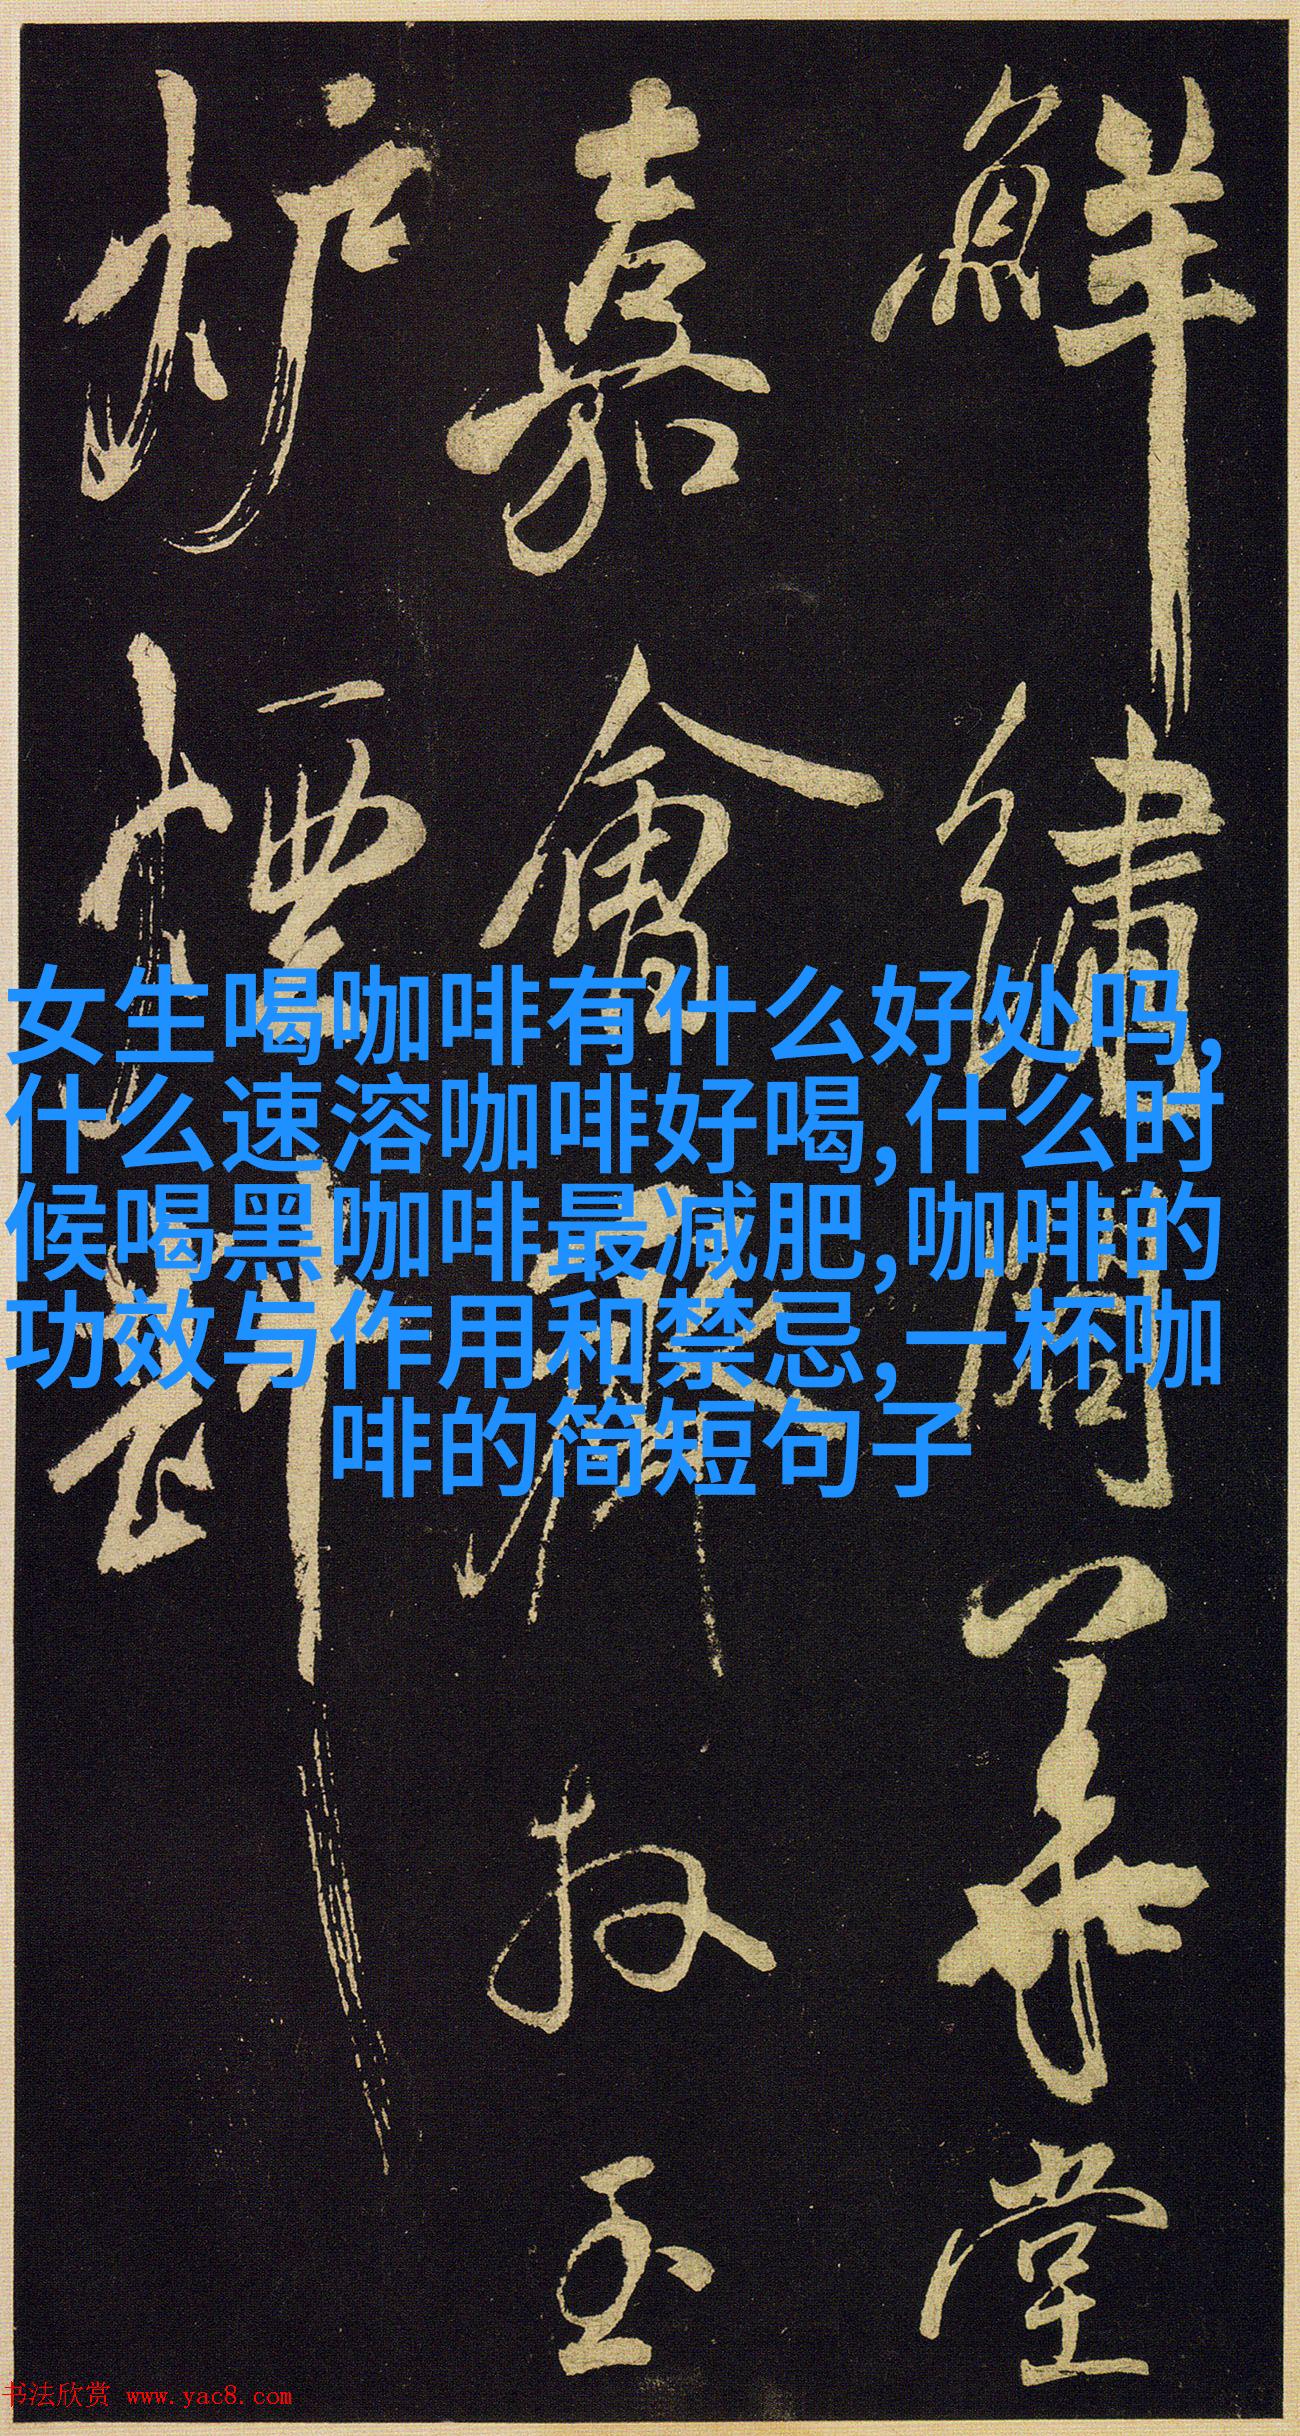 鮮繡閣華堂
嘉會 放玉
炉煙斟
女生喝咖啡有什么好处吗,
什么速溶咖啡好喝,什么时
候喝黑咖啡最减肥,咖啡的
功效与作用和禁忌,一杯咖
啡的简短句子
书法欣赏 www.yac8.com